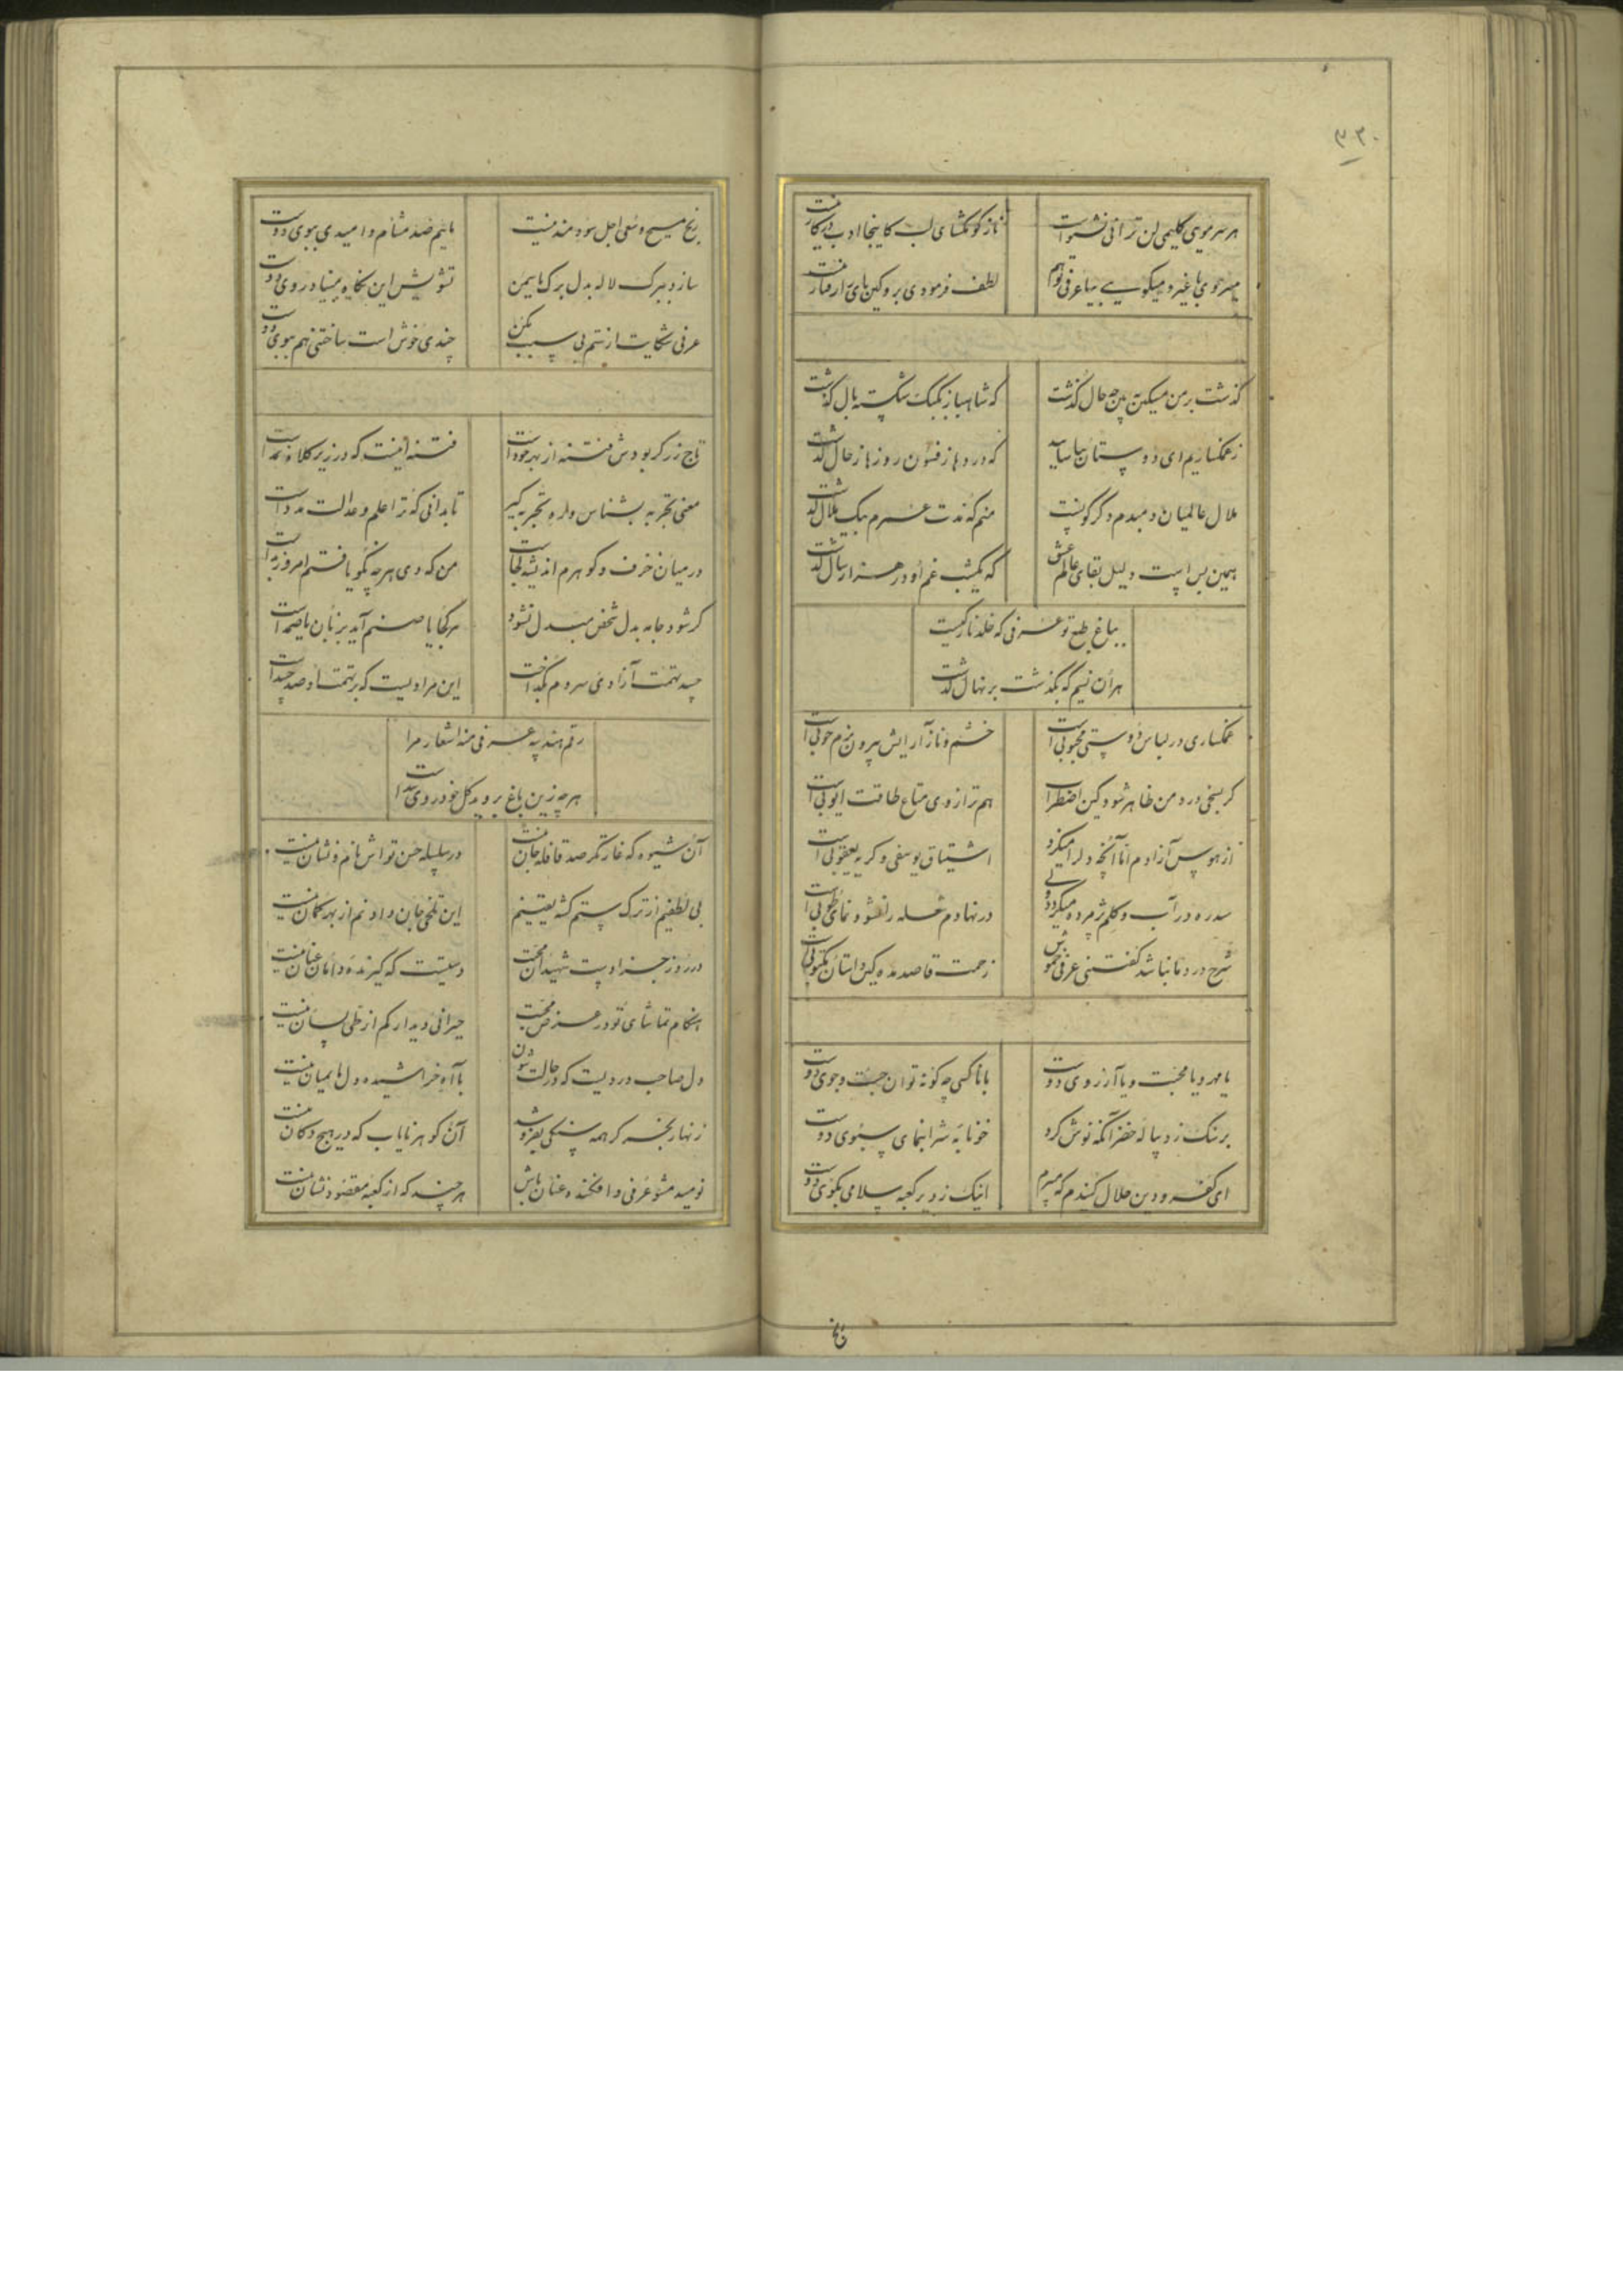 ۳۲۰
هر سر موی کلیمی لن ترانی نشنوا است ناز کو بگشای لب کاینجا ادب در کار نیست
میروی با غیر و میگویی بیا عرفی تو هم لطف فرمودی برو کین پای را رفتار نیست
گذشت بر من مسکین مپرس چه حال گذشت که شاهباز بکبک شکسته بال گذشت
ز غمگساریم ای دوستان بیاسایید که درد ما ز فسون روز ما ز حال گذشت
ملال عالمیان دمبدم دگرگونست منم که مدت عمرم بیک ملال گذشت
همین بس است دلیل بقای عالم عشق که یکشب غم او در هزار سال گذشت
بباغ طبع تو عرفی که خلد نارکیست
هر آن نسیم که بگذشت بر نهال گذشت
غمگساری در لباس دوستی محبوبی است خشم و ناز آرایش بیرون بزم خوبی است
گر بسنجی درد من ظاهر شود کین اضطراب هم ترازوی متاع طاقت ایوبی است
از هوس آزادم اما آنچه دل را میگزد اشتیاق یوسفی و گریه یعقوبی است
سدره در آب و گلم پژمرده میگردد ولی در نهادم شعله را نشو و نمای طوبی است
شرح درد ما نباشد گفتنی عرفی خموش زحمت قاصد مده کین داستان مکتوبی است
یا مهر و یا محبت و یا آرزوی دوست با ناکسی چگونه توان جست و جوی دوست
بر سنگ زد پیاله خضر آنکه نوش کرد خونابه شرابنمای سبوی دوست
ای کفر و دین حلال کنیدم که میبرم اینک ز دیر کعبه سلامی بکوی دوست
رنج مسیح و سعی اجل سودمند نیست مائیم صد مشام و امیدی ببوی دوست
سازد ببرک لاله بدل برک یاسمن تشویش این نگاه مبینا در روی دوست
عرفی شکایت از ستم بی سبب مکن چندی خوش است ساختنی هم بخوی دوست
تاج زر گر بودش فتنه از بهر خود است فتنه آنست که در زیر کلاه نمد است
معنی تجربه بشناس و ره تجربه گیر تا بدانی که ترا علم و عدالت مدد است
در میان خزف و گوهرم اندیشه کجاست من که دی هر چه نکو یافتم امروز بد است
گر شود جامه بدل شخص مبدل نشود هر کجا یا صنم آید بزبان یا صمد است
سید تهمت آزادی سروم بگداخت این مرادیست که بر تهمت او صد حسد است
رقم هندیه عرفی منه اشعار مرا
هر چه زین باغ بروید گل خودروی سد است
آن شیوه که غارتگر صد قافله جان نیست در سلسله حسن تو اش نام و نشان نیست
بی لطفیم از ترک ستم کشه یقینم این تلخی جان دادنم از بهر گمان نیست
در روز جزا دست شهیدان محبت دستیست که گیرنده دامان عنان نیست
هنگام تماشای تو در عرض محبت حیرانی دیدار کم از طی لسان نیست
دل صاحب دردیست که در حالت شیون با آه خراشیده دل ها بمیان نیست
زنهار بخر گر همه سنگی بفروشند آن گوهر نایاب که در هیچ دکان نیست
نومید مشو عرفی و افکنده عنان باش هر چند که از کعبه مقصود نشان نیست
رنج